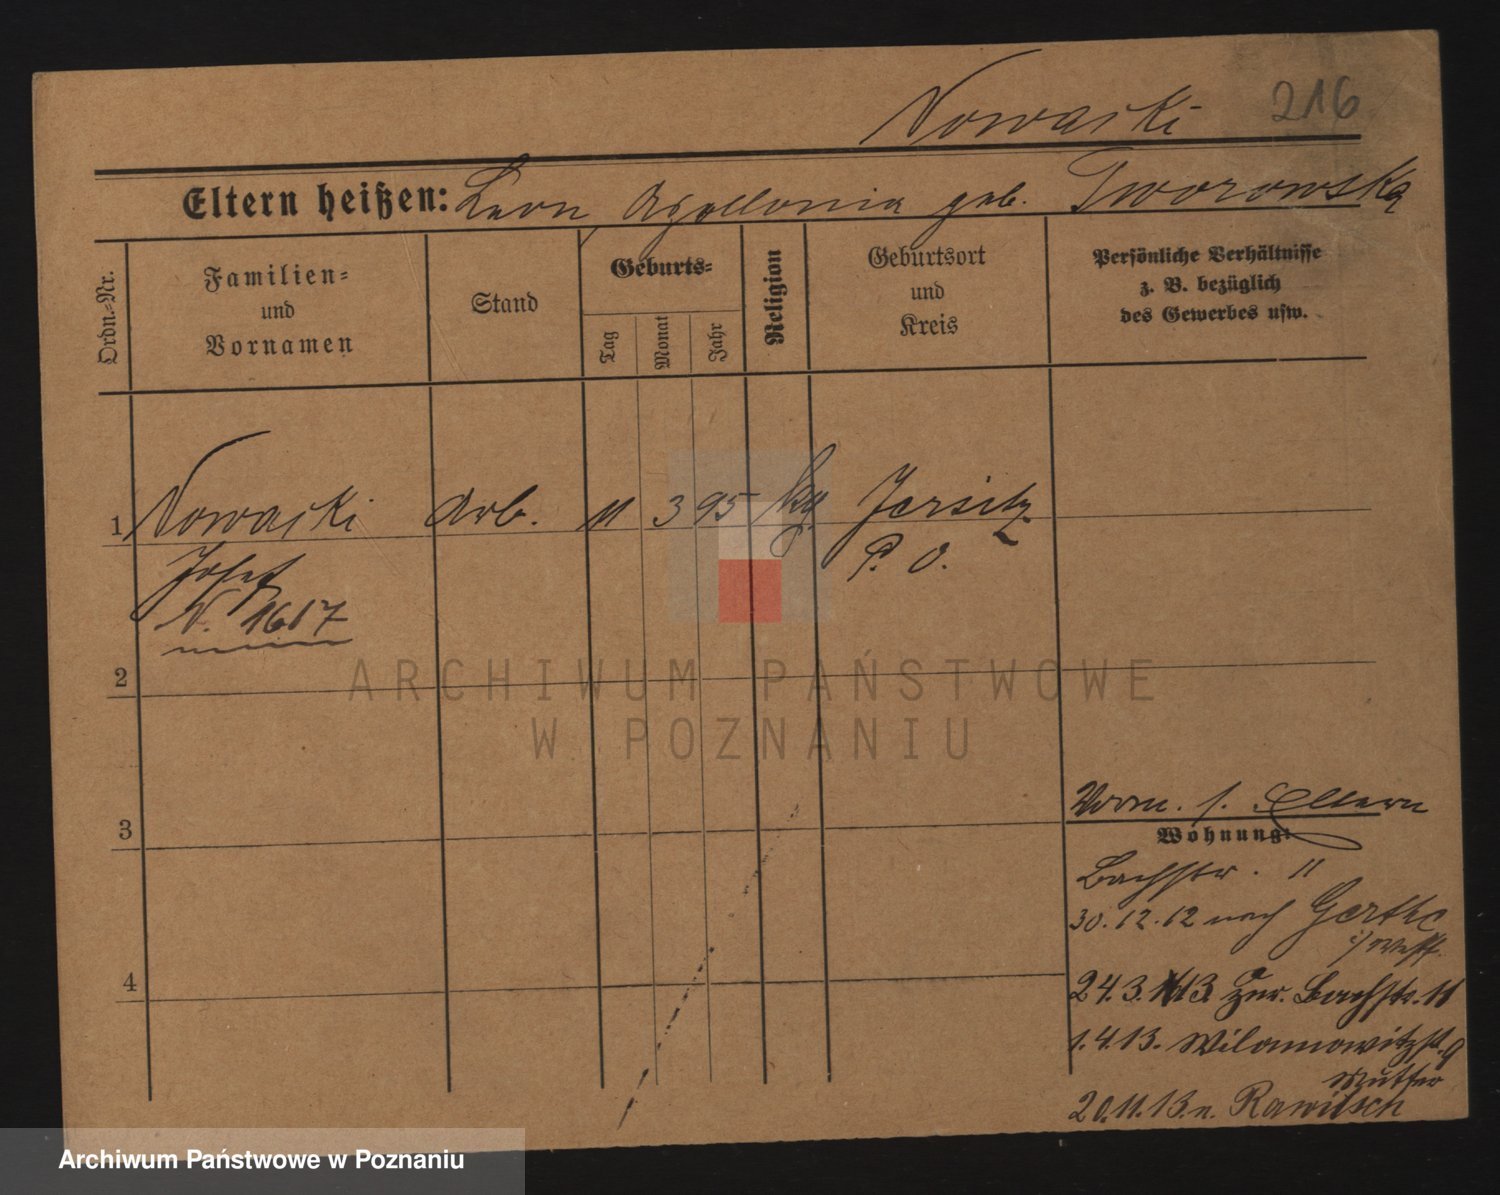 Nowacki 216
Eltern heißen: Leon Apollonia geb. Tworowska
Ordn.-Nr.
Familien-
und
Vornamen
Stand
Geburts-
Tag
Monat
Jahr
Religion
Geburtsort
und
Kreis
Persönliche Verhältnisse
z. B. bezüglich
des Gewerbes usw.
1 Nowacki Arb. 11 3 95 kg Jersitz
Josef P. O.
N. 1617
2
3
4
Vorm. s. Eltern
Wohnung:
Bachstr. 11
30.12.12 nach Gerthe
i/Westf.
24.3.13 zur. Bachstr. 11
1.4.13. Wilamowitzstr. 9
Mutter
20.11.13. n. Rawitsch
ARCHIWUM PAŃSTWOWE
W POZNANIU
Archiwum Państwowe w Poznaniu